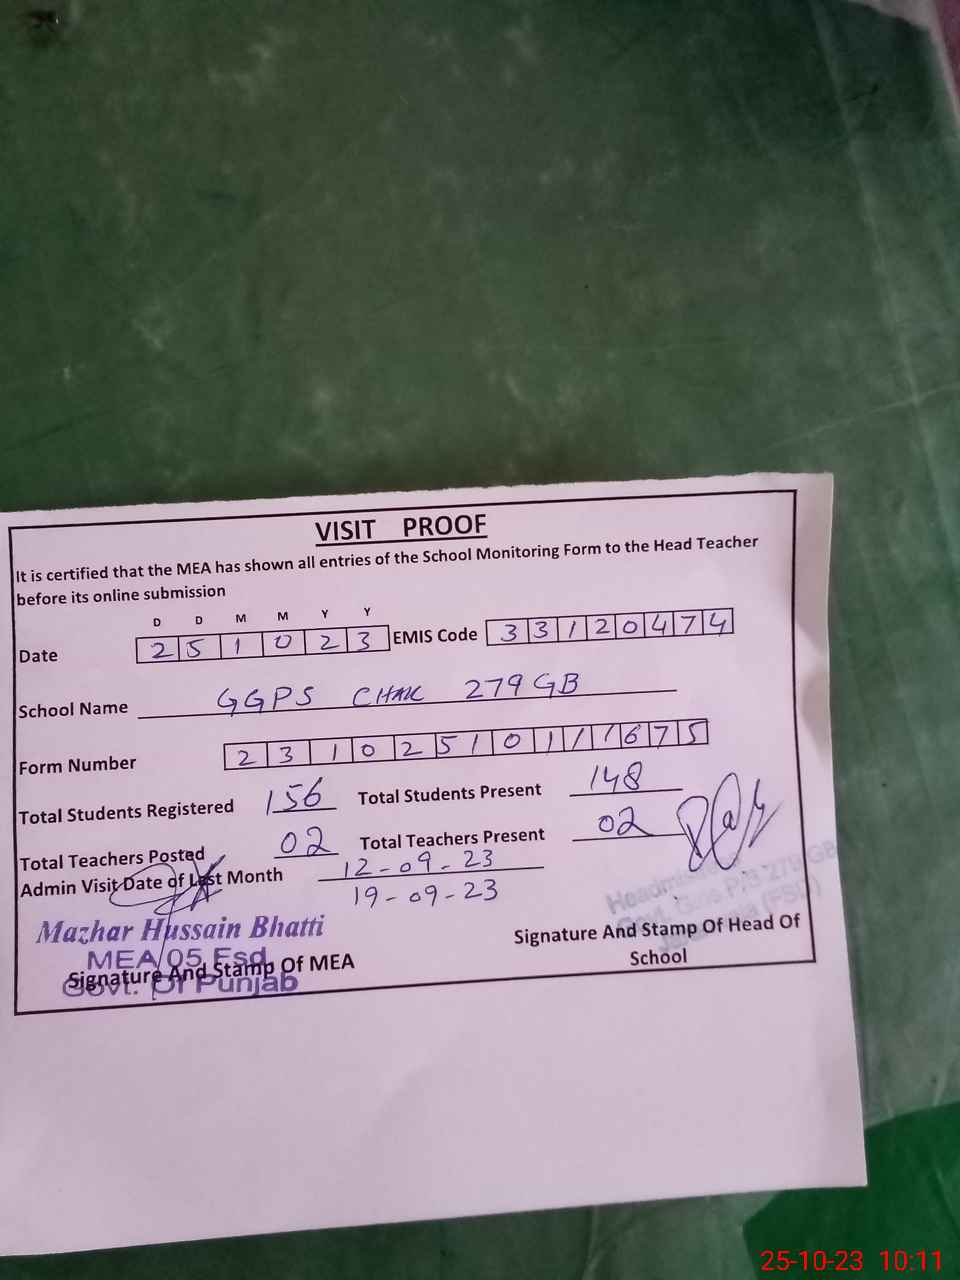 VISIT PROOF
It is certified that the MEA has shown all entries of the School Monitoring Form to the Head Teacher
before its online submission
D D M M Y Y
Date 2 5 1 0 2 3 EMIS Code 3 3 1 2 0 4 7 4
School Name GGPS CHAK 279 GB
Form Number 2 3 1 0 2 5 1 0 1 1 1 6 7 5
Total Students Registered 156 Total Students Present 148
Total Teachers Posted 02 Total Teachers Present 02
Admin Visit Date of Last Month 12-09-23
19-09-23
Mazhar Hussain Bhatti
MEA/05 Fsd
Govt. Of Punjab
Signature And Stamp Of MEA
Govt. P/S 279 GB
(FSD)
Signature And Stamp Of Head Of
School
25-10-23 10:11